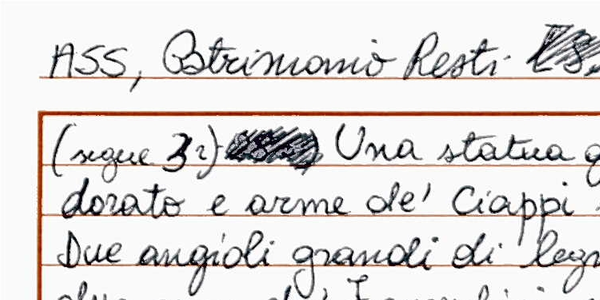 ASS, Patrimonio Resti
(segue 32) Una statua
dorato e arme de' Ciappi
Due angioli grandi di